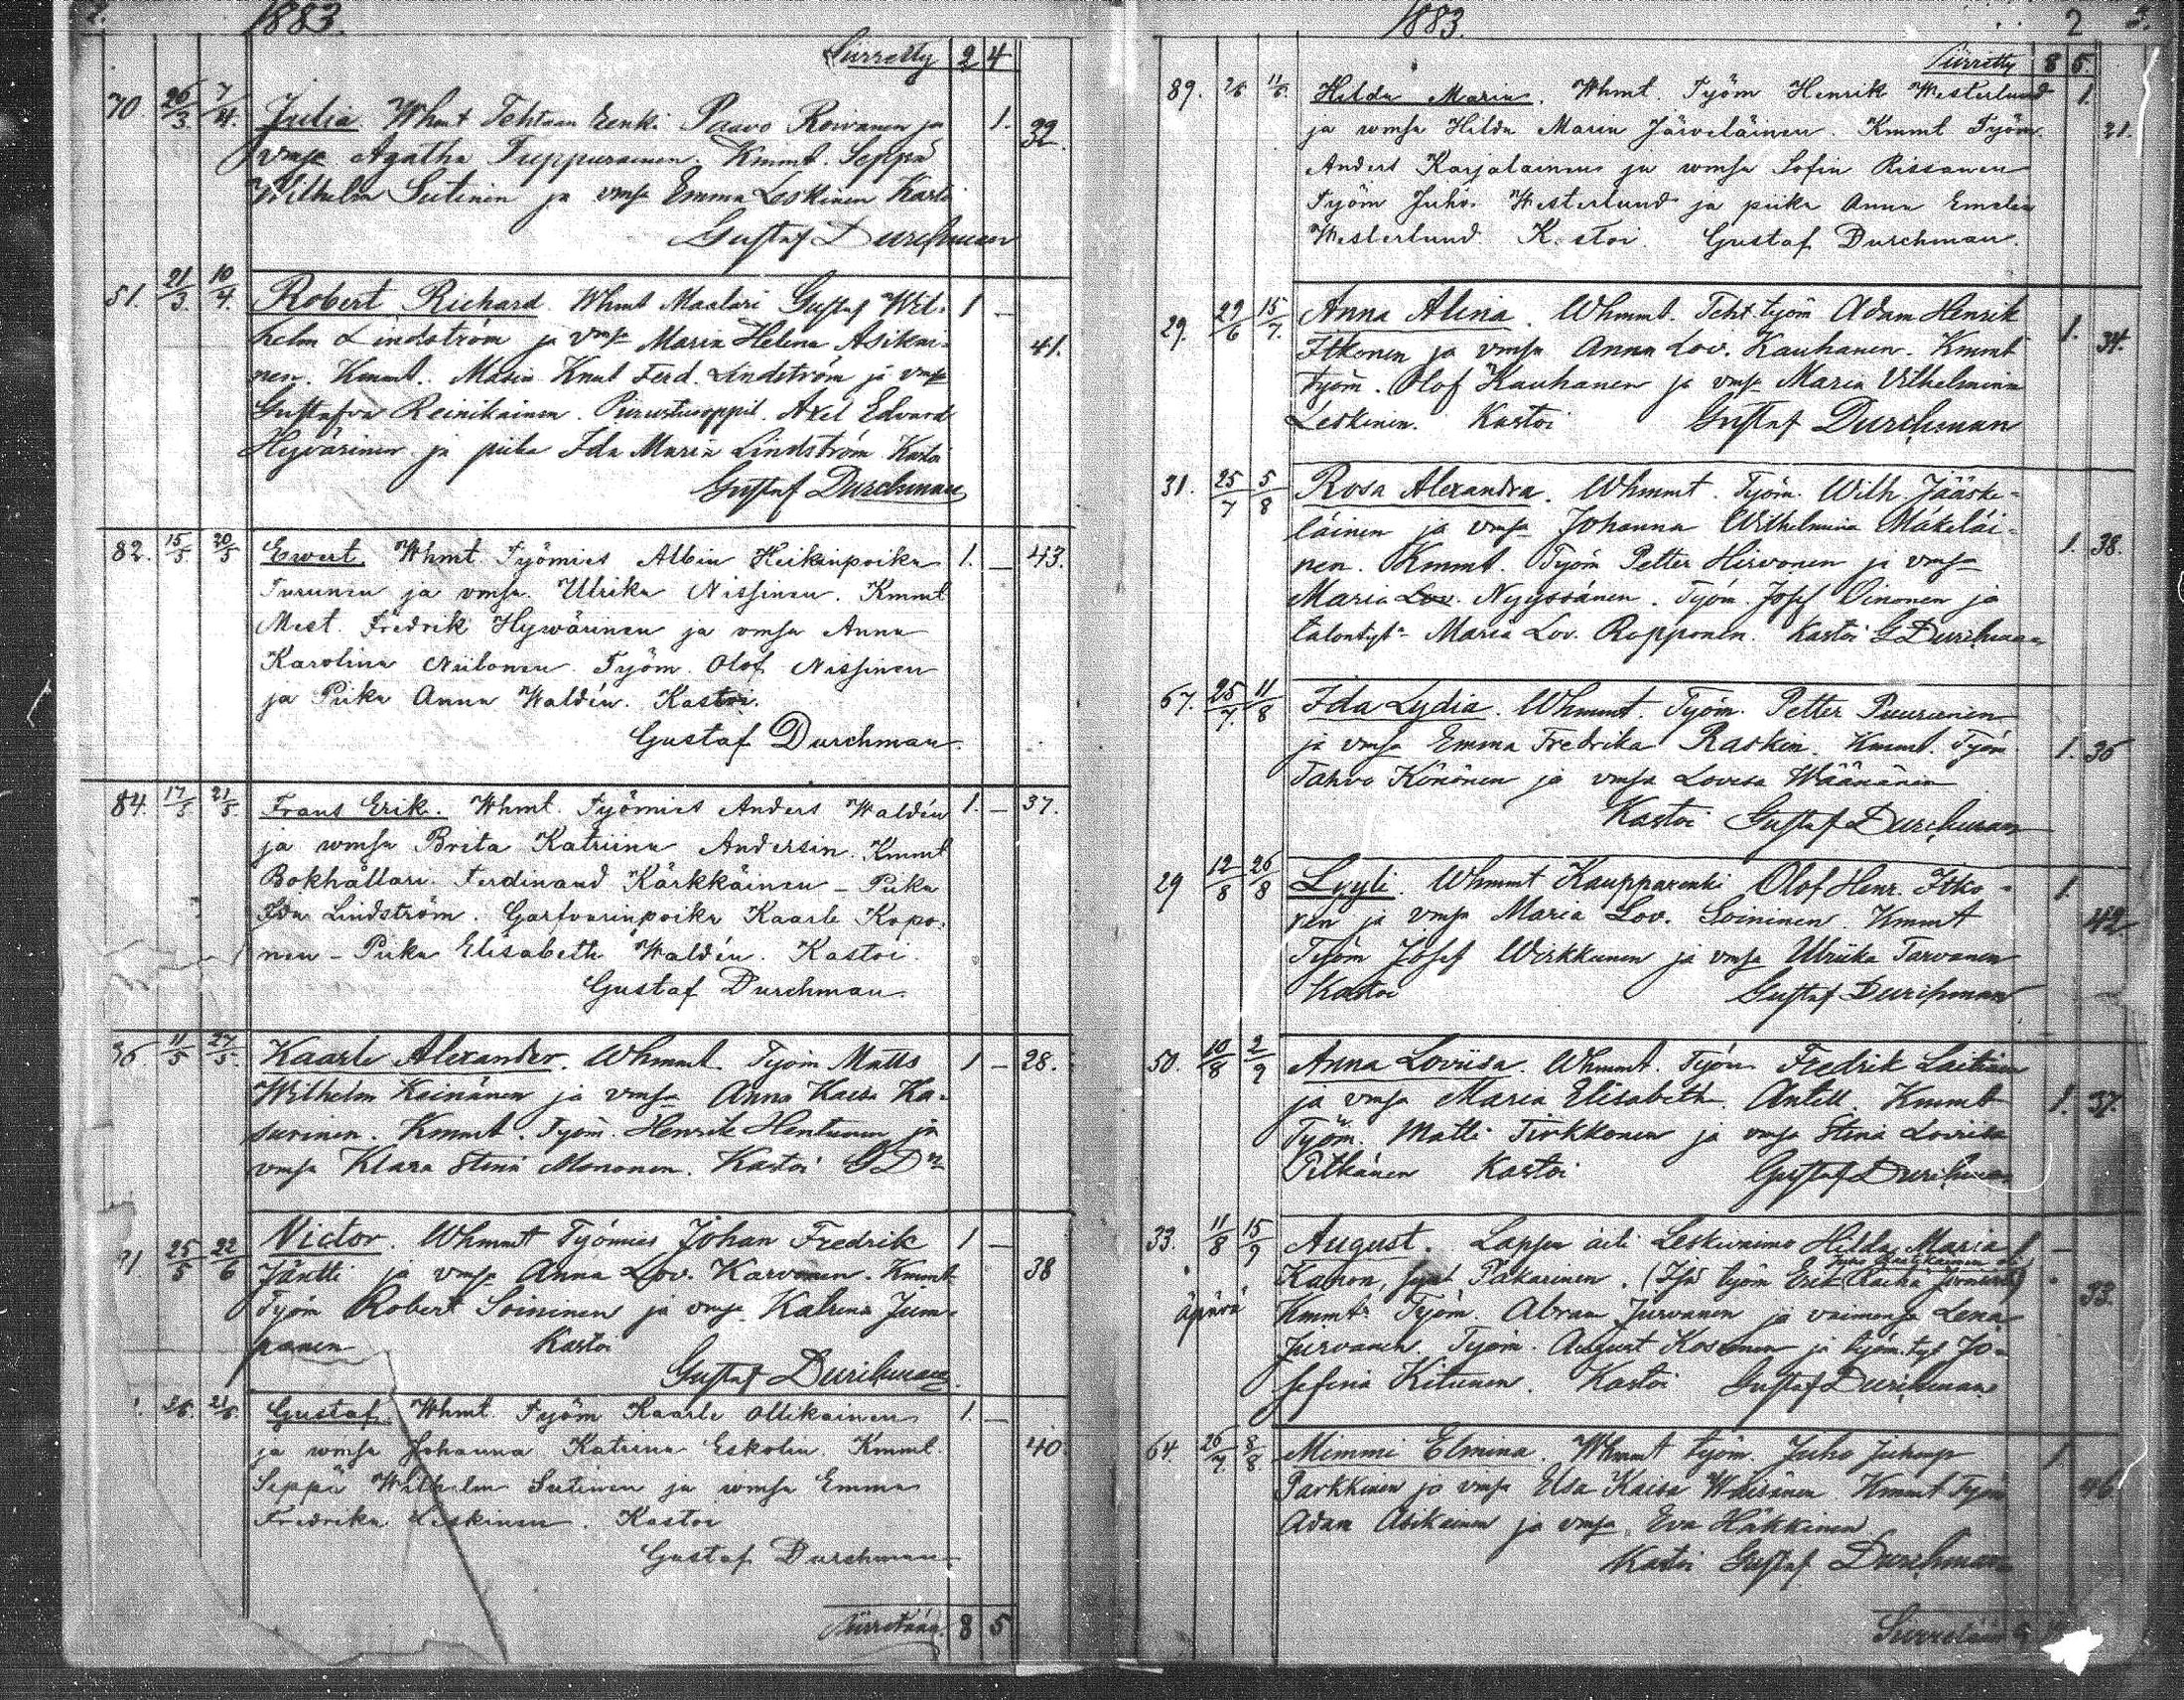 1883.
Siirretty 2 4
70. 26/3 7/4. Julia. Whmt Tehtaan renki Paavo Roivanen ja 1. 32.
vmsa Agatha Tuppurainen. Kmmt. Seppä
Wilhelm Sutinen ja vmsa Emma Leskinen Kastoi
Gustaf Durchman
51. 21/3. 10/4. Robert Richard. Whmt Maalari Gustaf Wil- 1 —
helm Lindström ja vmsa Maria Helena Asikai- 41.
nen. Kmmt. Knut Ferd. Lindström ja vmsa
Gustafva Reinikainen. Axel Edvard
Hyvärinen ja piika Ida Maria Lindström Kastoi
Gustaf Durchman
82. 15/5. 20/5 Ewert. Whmt. Työmies Albin Heikinpoika 1. — 43.
Turunen ja vmsa. Ulrika Nissinen. Kmmt
Mest. Fredrik Hywärinen ja vmsa Anna
Karolina Niilonen. Työm. Olof Nissinen
ja Piika Anna Waldén. Kastoi.
Gustaf Durchman.
84. 17/5 21/5. Frans Erik. Whmt. Työmies Anders Waldén 1. — 37.
ja wmsa Brita Katriina Andersin. Kmmt
Bokhållari. Ferdinand Kärkkäinen — Piika
Ida Lindström. Garfvarinpoika Kaarle Kopo-
nen — Piika Elisabeth Waldén. Kastoi.
Gustaf Durchman.
36. 11/5 27/5. Kaarle Alexander. Whmmt. Työm Matts 1 — 28.
Wilhelm Keinänen ja vmsa Anna Kaisa Ka-
surinen. Kmmt. Työm. Henrik Hentunen ja
vmsa Klara Stina Mononen. Kastoi G Dn
25/5 22/6 Victor. Whmmt Työmies Johan Fredrik 1 —
Jäntti ja vmsa Anna Lov. Karvonen. Kmmt 38
Työm Robert Soininen ja vmsa Katrina Jum-
panen Kastoi
Gustaf Durchman.
Gustaf. Whmt. Työm Kaarle Ollikainen 1. —
ja wmsa Johanna Katrina Eskolin. Kmmt. 40.
Seppä Wilhelm Sutinen ja wmsa Emma
Fredrika Leskinen. Kastoi
Gustaf Durchman
Siirretään. 8 5
1883. 2 3.
Siirretty 8 5.
89. Hilda Maria. Whmt. Työm Henrik Westerlund 1.
ja wmsa Hilda Maria Järveläinen. Kmmt Työm. 21.
Anders Karjalainen ja wmsa Sofia Rissanen
Työm Juho Westerlund ja piika Anna Emelia
Westerlund K.stoi. Gustaf Durchman.
29. 29/6 15/7. Anna Alina. Whmmt. Teht. työm Adam Henrik
Itkonen ja vmsa Anna Lov. Kauhanen. Kmmt 1. 34.
Työm. Olof Kauhanen ja vmsa Maria Vilhelmina
Leskinen. Kastoi Gustaf Durchman
31. 25/7 5/8 Rosa Alexandra. Whmmt. Työm. Wilh. Jääske-
läinen ja vmsa Johanna Wilhelmina Mäkeläi- 1. 38.
nen. Kmmt. Työm Petter Hirvonen ja vmsa
Maria Lov. Nyyssänen. Työm. Josef Oinonen ja
talontyt. Maria Lov. Ropponen. Kastoi G Durchman
67. 25/7. 11/8 Ida Lydia. Whmmt. Työm. Petter Puurunen
ja vmsa Emma Fredrika Raskin. Kmmt. Työm 1. 36
Tahvo Könönen ja vmsa Lovisa Wäänänen
Kastoi Gustaf Durchman
29 12/8 26/8 Lyyli. Whmmt Kaupparenki Olof Henr. Itko- 1.
nen ja vmsa Maria Lov. Soininen. Kmmt 42
Työm Josef Wirkkunen ja vmsa Ulriika Tarvanen
Kastoi Gustaf Durchman
50. 10/8 2/9 Anna Loviisa. Whmmt. Työm Fredrik Laitinen
ja vmsa Maria Elisabeth Antell. Kmmt 1. 37.
Työm. Matti Tirkkonen ja vmsa Stina Lovisa
Pitkänen Kastoi Gustaf Durchman
33. 11/8 15/9 August. Lapsen äiti Leskivaimo Hilda Maria 1 —
Kanon, synt. Pakarinen. (Isä työm Erik
Äpärä Kmmt Työm. Abram Jurvanen ja vaimonsa Lena 33.
Jurvanen. Työm. August Kosonen ja työm. tyt. Jo-
sefina Kitunen. Kastoi Gustaf Durchman
64. 26/7. 8/8. Mimmi Elmina. Whmmt työm. Juho Juhanp 1.
Parkkinen ja vmsa Elsa Kaisa Wäisänen Kmmt Työm 46
Adam Asikainen ja vmsa Eva Häkkinen
Kastoi Gustaf Durchman
Siirretään